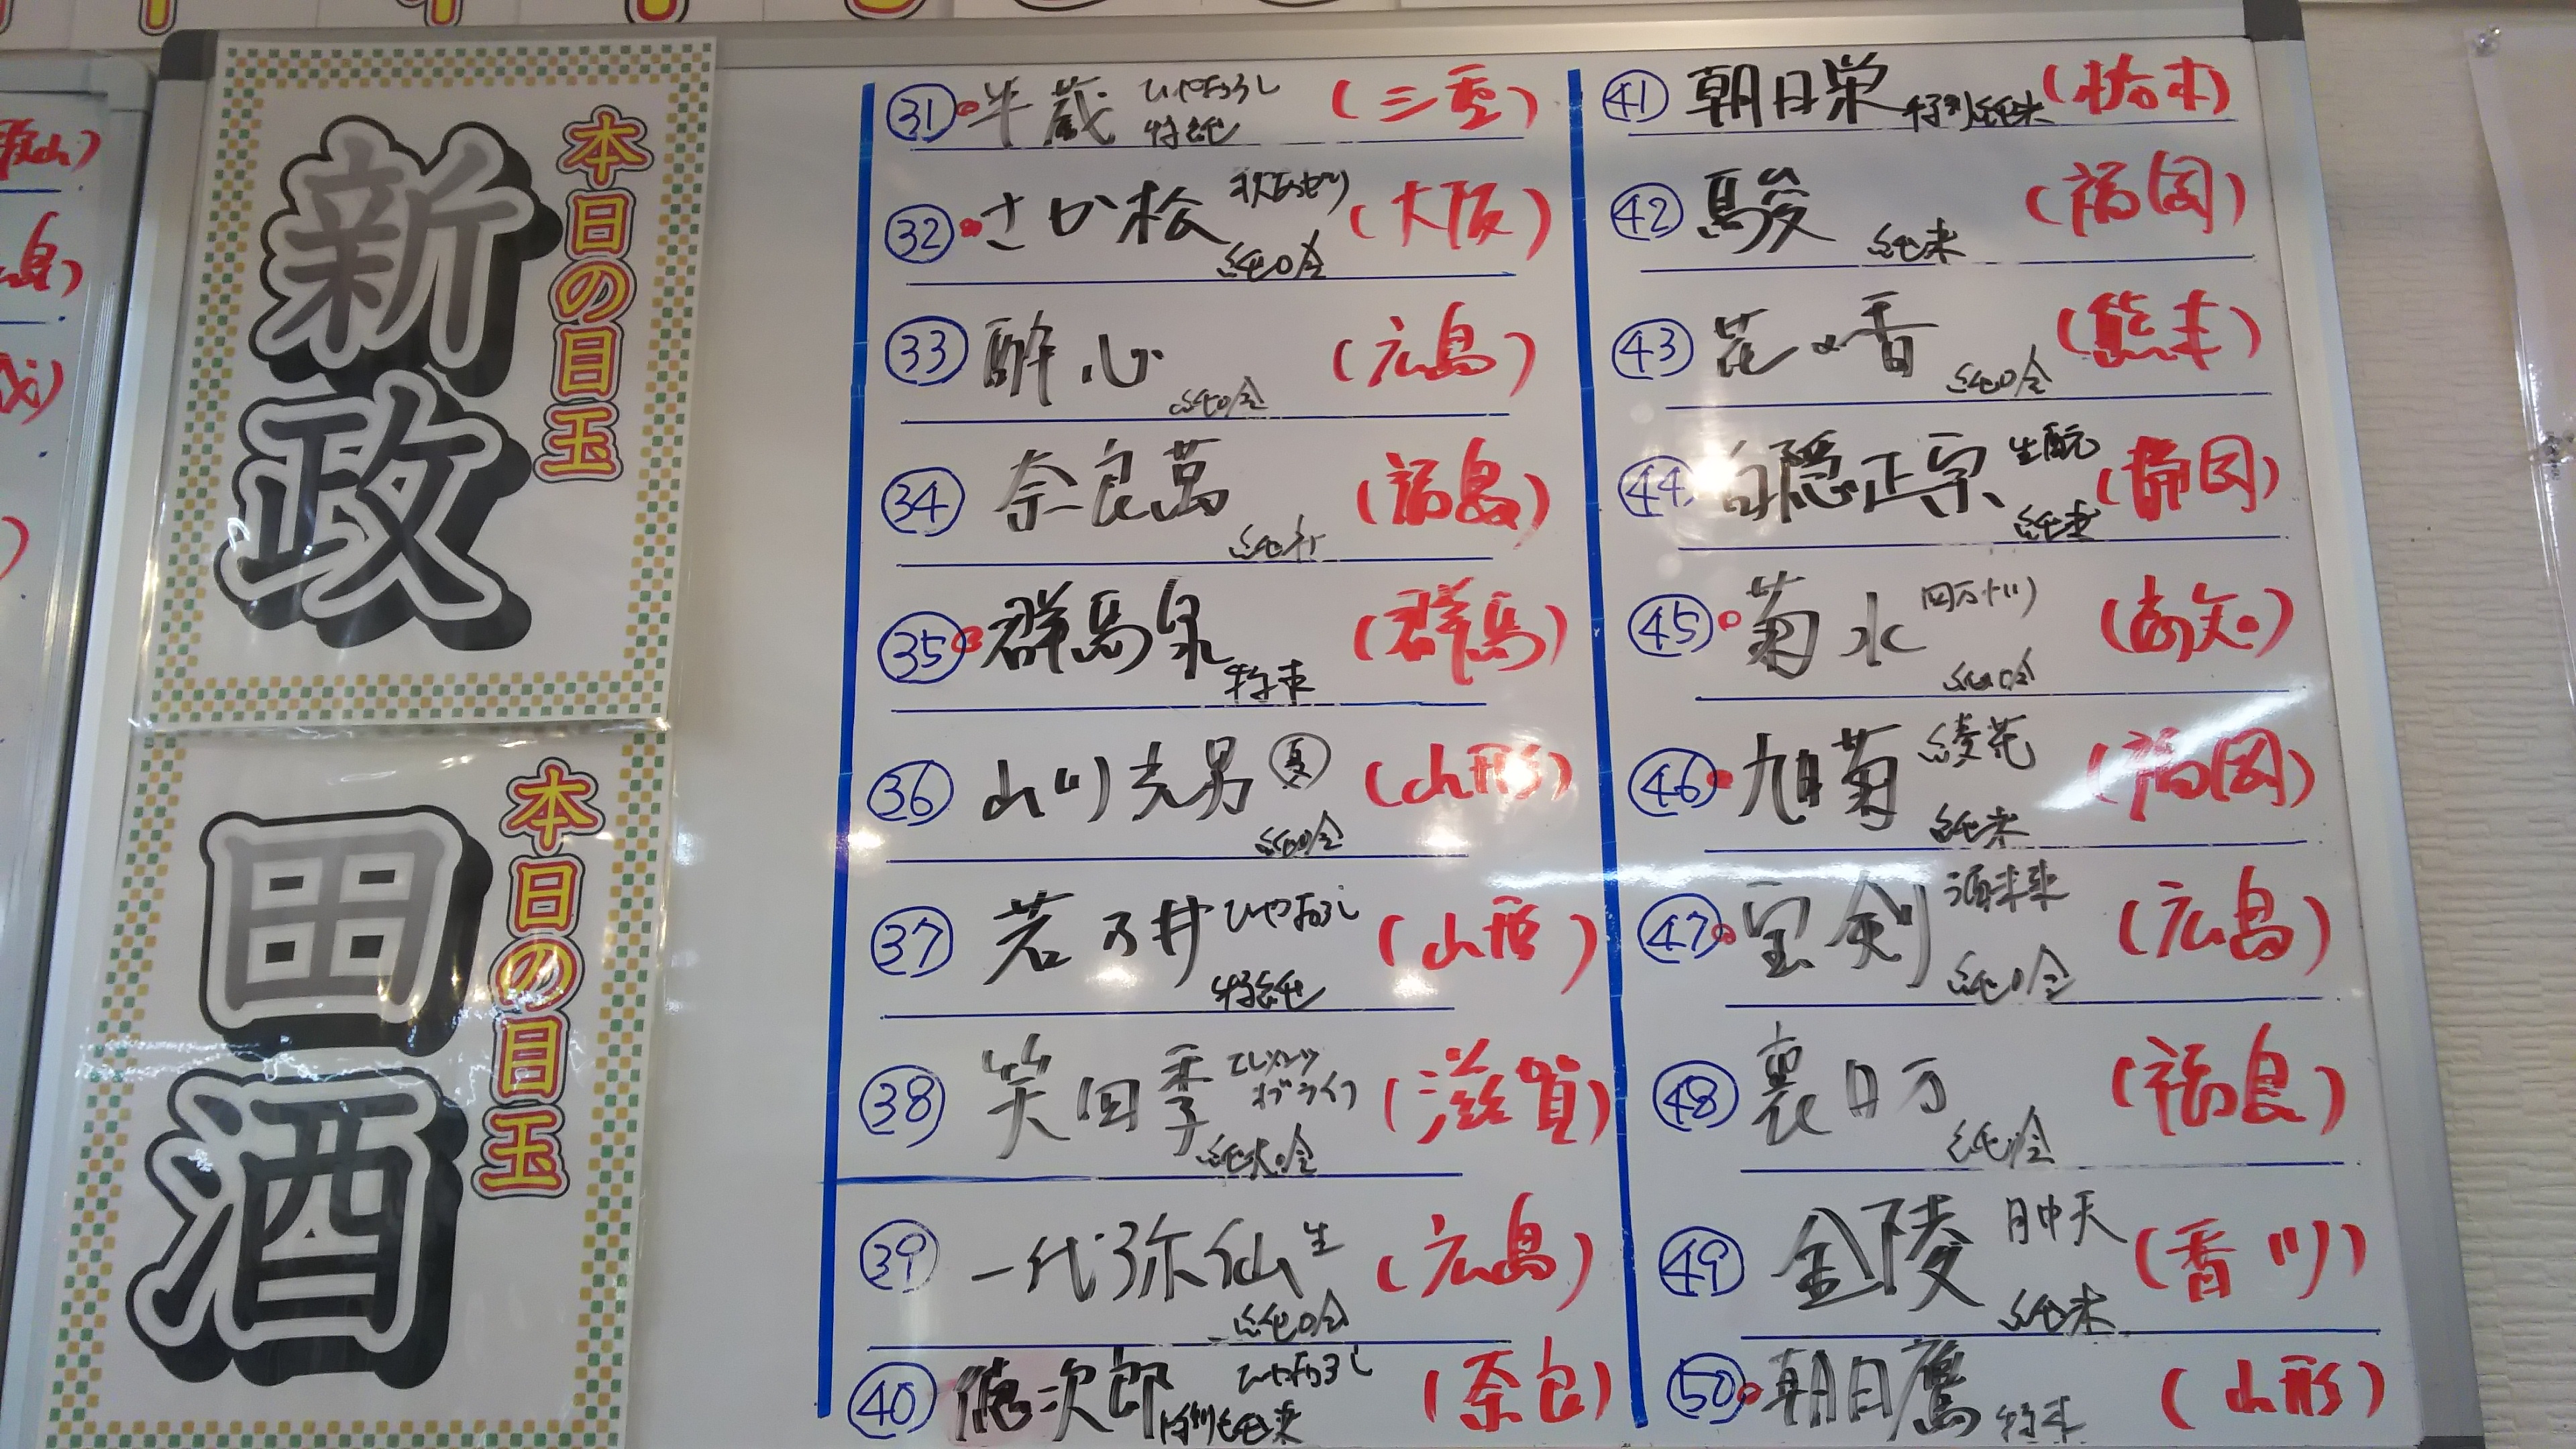 本日の目玉
新政
本日の目玉
田酒
31 半蔵 ひやおろし 特純 (三重)
32 さか松 秋あがり 純吟 (大阪)
33 酔心 純吟 (広島)
34 奈良萬 純米 (福島)
35 群馬泉 特米 (群馬)
36 山川光男 夏 純吟 (山形)
37 若乃井 ひやおろし 特純 (山形)
38 笑四季 エレメンツ オブ ライフ 純大吟 (滋賀)
39 一代弥山 生 純吟 (広島)
40 徳次郎 ひやおろし 特別純米 (奈良)
41 朝日栄 特別純米 (栃木)
42 駿 純米 (福岡)
43 花の香 純吟 (熊本)
44 白隠正宗 生酛 純米 (静岡)
45 菊水 四万十川 純吟 (高知)
46 旭菊 綾花 純米 (福岡)
47 宝剣 酒未来 純吟 (広島)
48 裏月弓 純吟 (福島)
49 金陵 月中天 純米 (香川)
50 朝日鷹 特本 (山形)